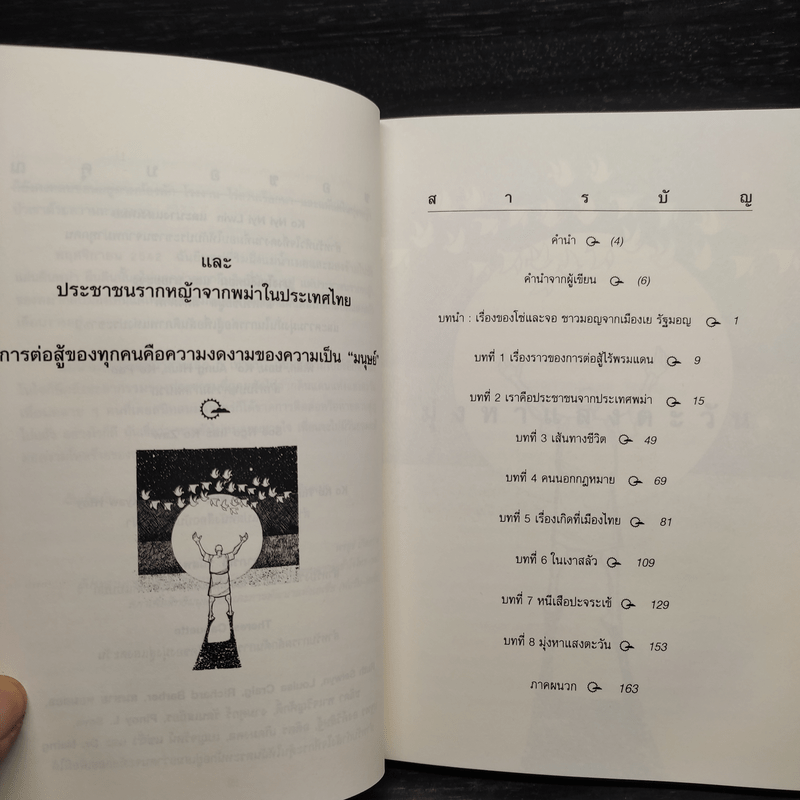 และ
ประชาชนรากหญ้าจากพม่าในประเทศไทย
การต่อสู้ของทุกคนคือความงดงามของความเป็น "มนุษย์"
สารบัญ
คำนำ (4)
คำนำจากผู้เขียน (6)
บทนำ : เรื่องของโซ่และจอ ชาวมอญจากเมืองเย รัฐมอญ 1
บทที่ 1 เรื่องราวของการต่อสู้ไร้พรมแดน 9
บทที่ 2 เราคือประชาชนจากประเทศพม่า 15
บทที่ 3 เส้นทางชีวิต 49
บทที่ 4 คนนอกกฎหมาย 69
บทที่ 5 เรื่องเกิดที่เมืองไทย 81
บทที่ 6 ในเงาสลัว 109
บทที่ 7 หนีเสือปะจระเข้ 129
บทที่ 8 มุ่งหาแสงตะวัน 153
ภาคผนวก 163